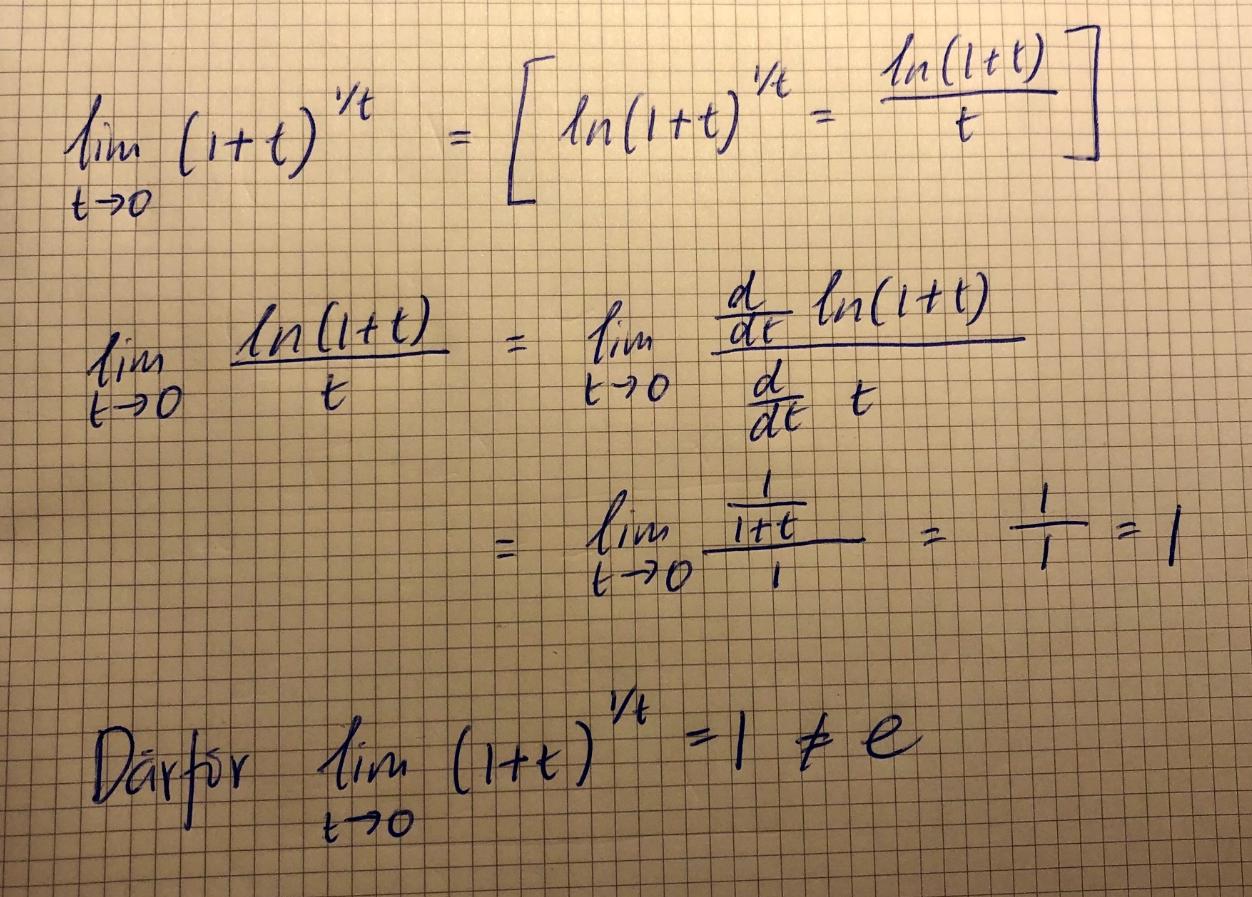 lim_{t→0} (1+t)^{1/t} = [ ln(1+t)^{1/t} = \frac{ln(1+t)}{t} ]
lim_{t→0} \frac{ln(1+t)}{t} = lim_{t→0} \frac{\frac{d}{dt} ln(1+t)}{\frac{d}{dt} t}
= lim_{t→0} \frac{\frac{1}{1+t}}{1} = \frac{1}{1} = 1
Därför lim_{t→0} (1+t)^{1/t} = 1 ≠ e